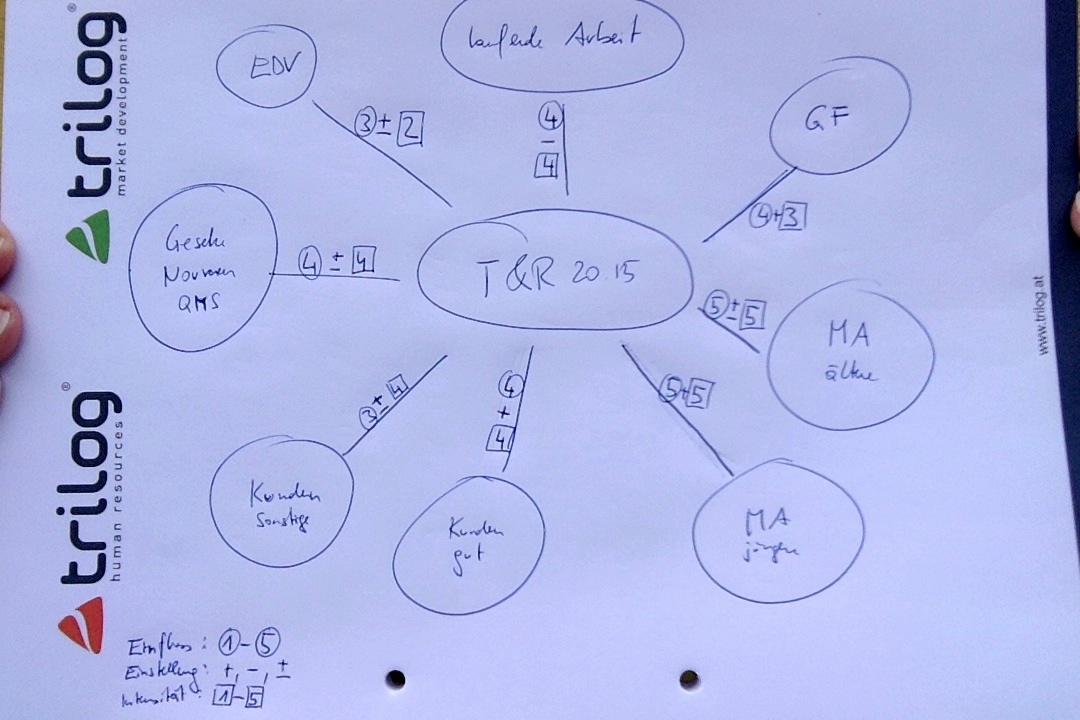 trilog®
market development
trilog®
human resources
www.trilog.at
EDV
③ ± 2
laufende Arbeit
④
-
4
GF
④ + 3
Normen
QMS
④ ± 4
T&R 20.15
⑤ ± 5
MA
ältere
③ ± 4
Kunden
sonstige
④
+
4
Kunden
gut
⑤ + 5
MA
jüngere
Einfluss: ① - ⑤
Einstellung: +, -, ±
Intensität: 1 - 5